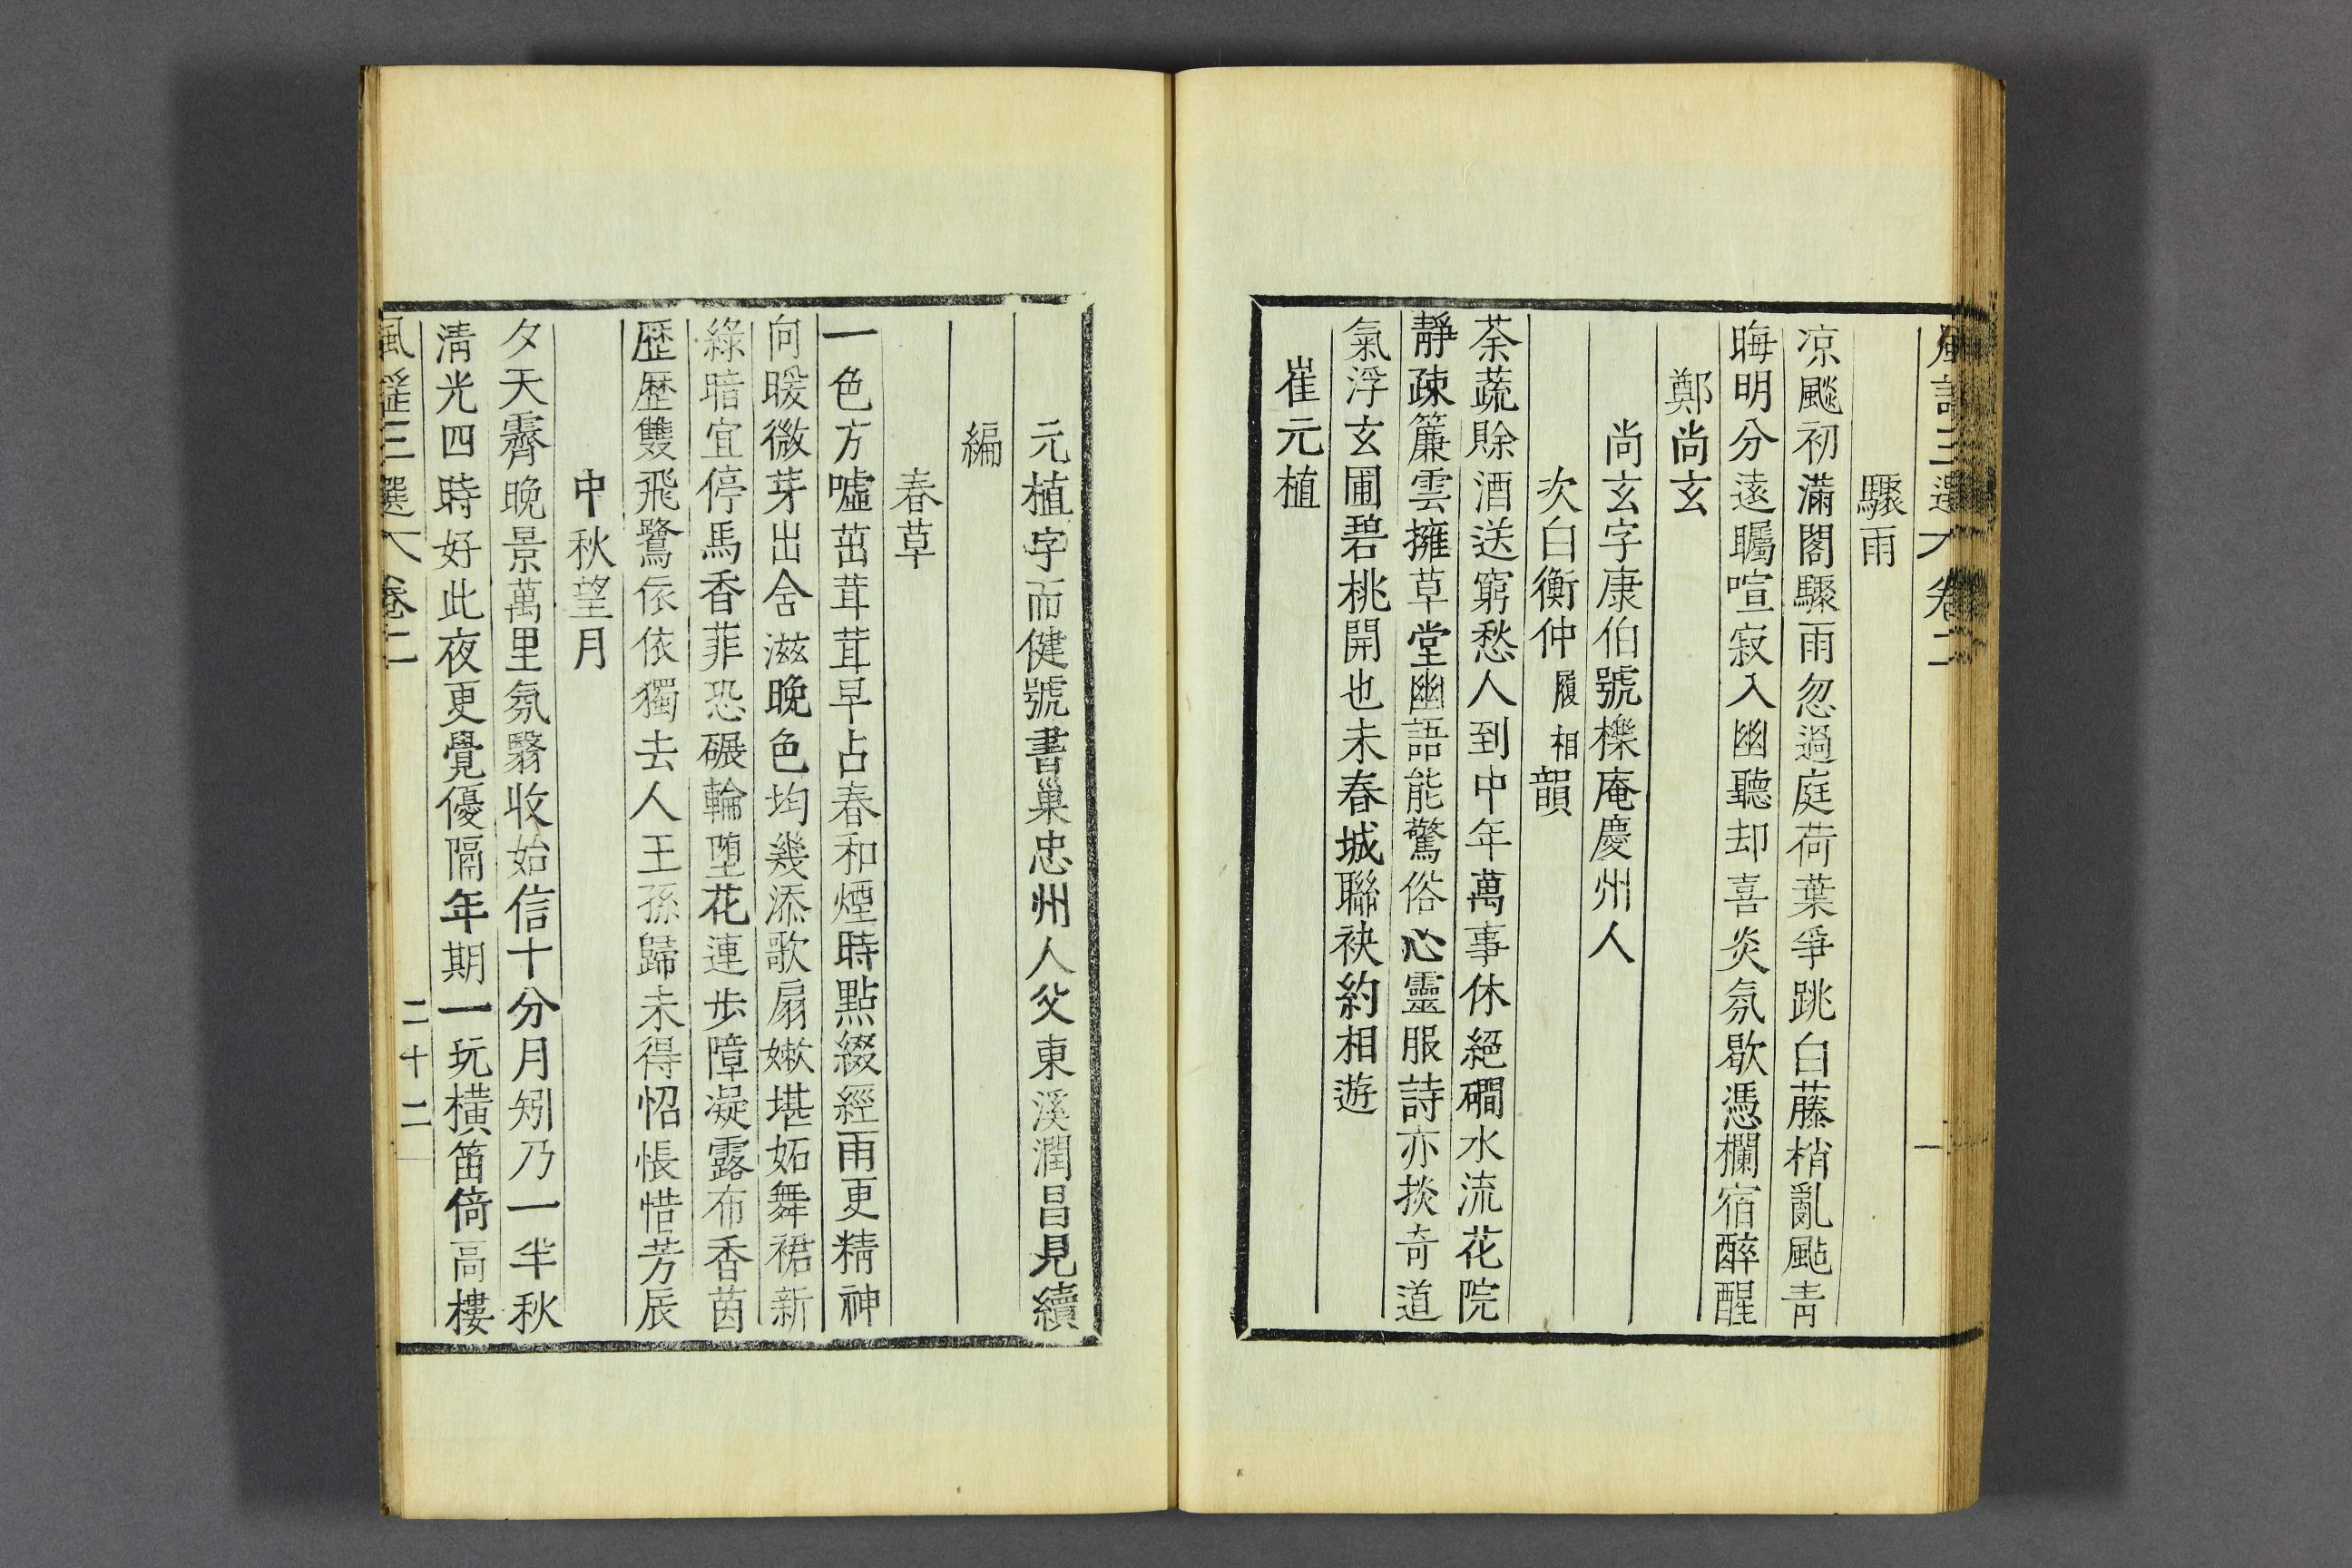 風謠三選 卷二
驟雨
凉颷初滿閣驟雨忽過庭荷葉爭跳白藤梢亂颭靑
晦明分遠矚喧寂入幽聽却喜炎氛歇憑欄宿醉醒
鄭尚玄
尚玄字康伯號櫟庵慶州人
次白衡仲履相韻
荼蔬賒酒送窮愁人到中年萬事休絕磵水流花院
靜疎簾雲擁草堂幽語能驚俗心靈服詩亦掞奇道
氣浮玄圃碧桃開也未春城聯袂約相遊
崔元植
元植字而健號書巢忠州人父東溪潤昌見續
編
春草
一色方噓茁茸茸早占春和煙時點綴經雨更精神
向暖微芽出含滋晚色均幾添歌扇嫰堪妬舞裙新
綠暗宜停馬香菲恐碾輪堕花連步障凝露布香茵
歷歷雙飛鷺依依獨去人王孫歸未得怊悵惜芳辰
中秋望月
夕天霽晩景萬里氛翳收始信十分月矧乃一半秋
淸光四時好此夜更覺優隔年期一玩橫笛倚高樓
風謠三選 卷二 二十二